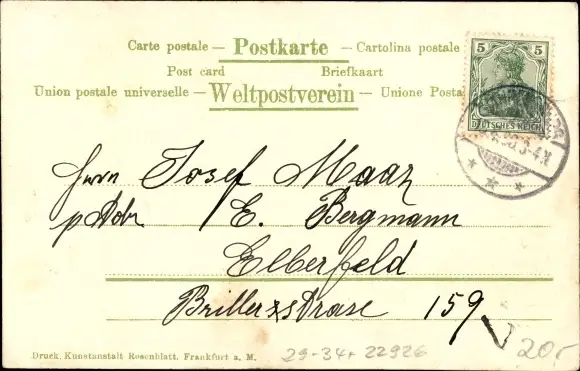 Carte postale — Postkarte — Cartolina postale
Post card Briefkaart
Union postale universelle — Weltpostverein — Unione Posta
5 5
DEUTSCHES REICH
3-4 N
Herrn Josef Maar
p Adr E. Bergmann
Elberfeld
Brillerstrasse 159
Druck. Kunstanstalt Rosenblatt. Frankfurt a. M.
29-34+ 22926
20,-